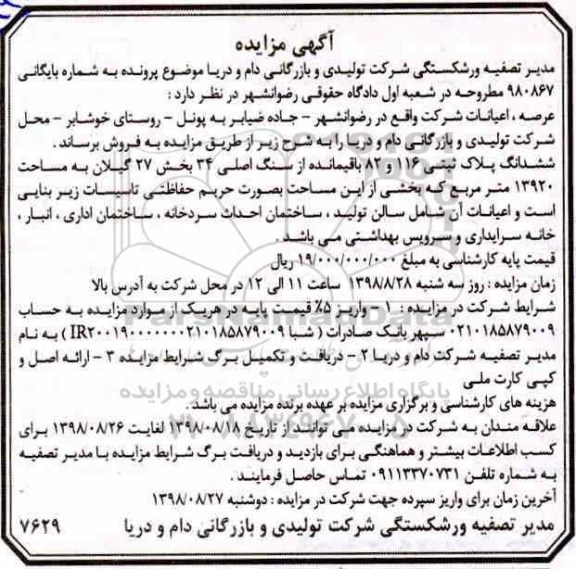 آگهی مزایده
مدیر تصفیه ورشکستگی شرکت تولیدی و بازرگانی دام و دریا موضوع پرونده به شماره بایگانی
۹۸۰۸۶۷ مطروحه در شعبه اول دادگاه حقوقی رضوانشهر در نظر دارد :
عرصه ، اعیانات شرکت واقع در رضوانشهر - جاده ضیابر به پونل - روستای خوشابر - محل
شرکت تولیدی و بازرگانی دام و دریا را به شرح زیر از طریق مزایده به فروش برساند .
ششدانگ پلاک ثبتی ۱۱۶ و ۸۲ باقیمانده از سنگ اصلی ۳۴ بخش ۲۷ گیلان به مساحت
۱۳۹۲۰ متر مربع که بخشی از این مساحت بصورت حریم حفاظتی تاسیسات زیر بنایی
است و اعیانات آن شامل سالن تولید ، ساختمان احداث سردخانه ، ساختمان اداری ، انبار ،
خانه سرایداری و سرویس بهداشتی می باشد .
قیمت پایه کارشناسی به مبلغ ۱۹/۰۰۰/۰۰۰/۰۰۰ ریال
زمان مزایده : روز سه شنبه ۱۳۹۸/۸/۲۸ ساعت ۱۱ الی ۱۲ در محل شرکت به آدرس بالا
شرایط شرکت در مزایده : ۱ - واریز ۵٪ قیمت پایه در هریک از موارد مزایده به حساب
۰۲۱۰۱۸۵۸۷۹۰۰۹ سپهر بانک صادرات ( شبا IR۲۰۰۱۹۰۰۰۰۰۰۰۲۱۰۱۸۵۸۷۹۰۰۹ ) به نام
مدیر تصفیه شرکت دام و دریا ۲ - دریافت و تکمیل برگ شرایط مزایده ۳ - ارائه اصل و
کپی کارت ملی
هزینه های کارشناسی و برگزاری مزایده بر عهده برنده مزایده می باشد .
علاقه مندان به شرکت در مزایده می توانند از تاریخ ۱۳۹۸/۰۸/۱۸ لغایت ۱۳۹۸/۰۸/۲۶ برای
کسب اطلاعات بیشتر و هماهنگی برای بازدید و دریافت برگ شرایط مزایده با مدیر تصفیه
به شماره تلفن ۰۹۱۱۳۳۷۰۷۳۱ تماس حاصل فرمایند .
آخرین زمان برای واریز سپرده جهت شرکت در مزایده : دوشنبه ۱۳۹۸/۰۸/۲۷
مدیر تصفیه ورشکستگی شرکت تولیدی و بازرگانی دام و دریا ۷۶۲۹